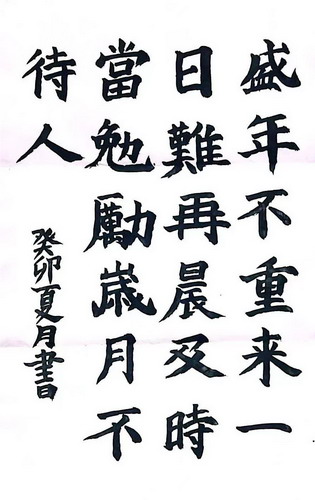 盛年不重来一
日難再晨及時
當勉勵歲月不
待人
癸卯夏月書